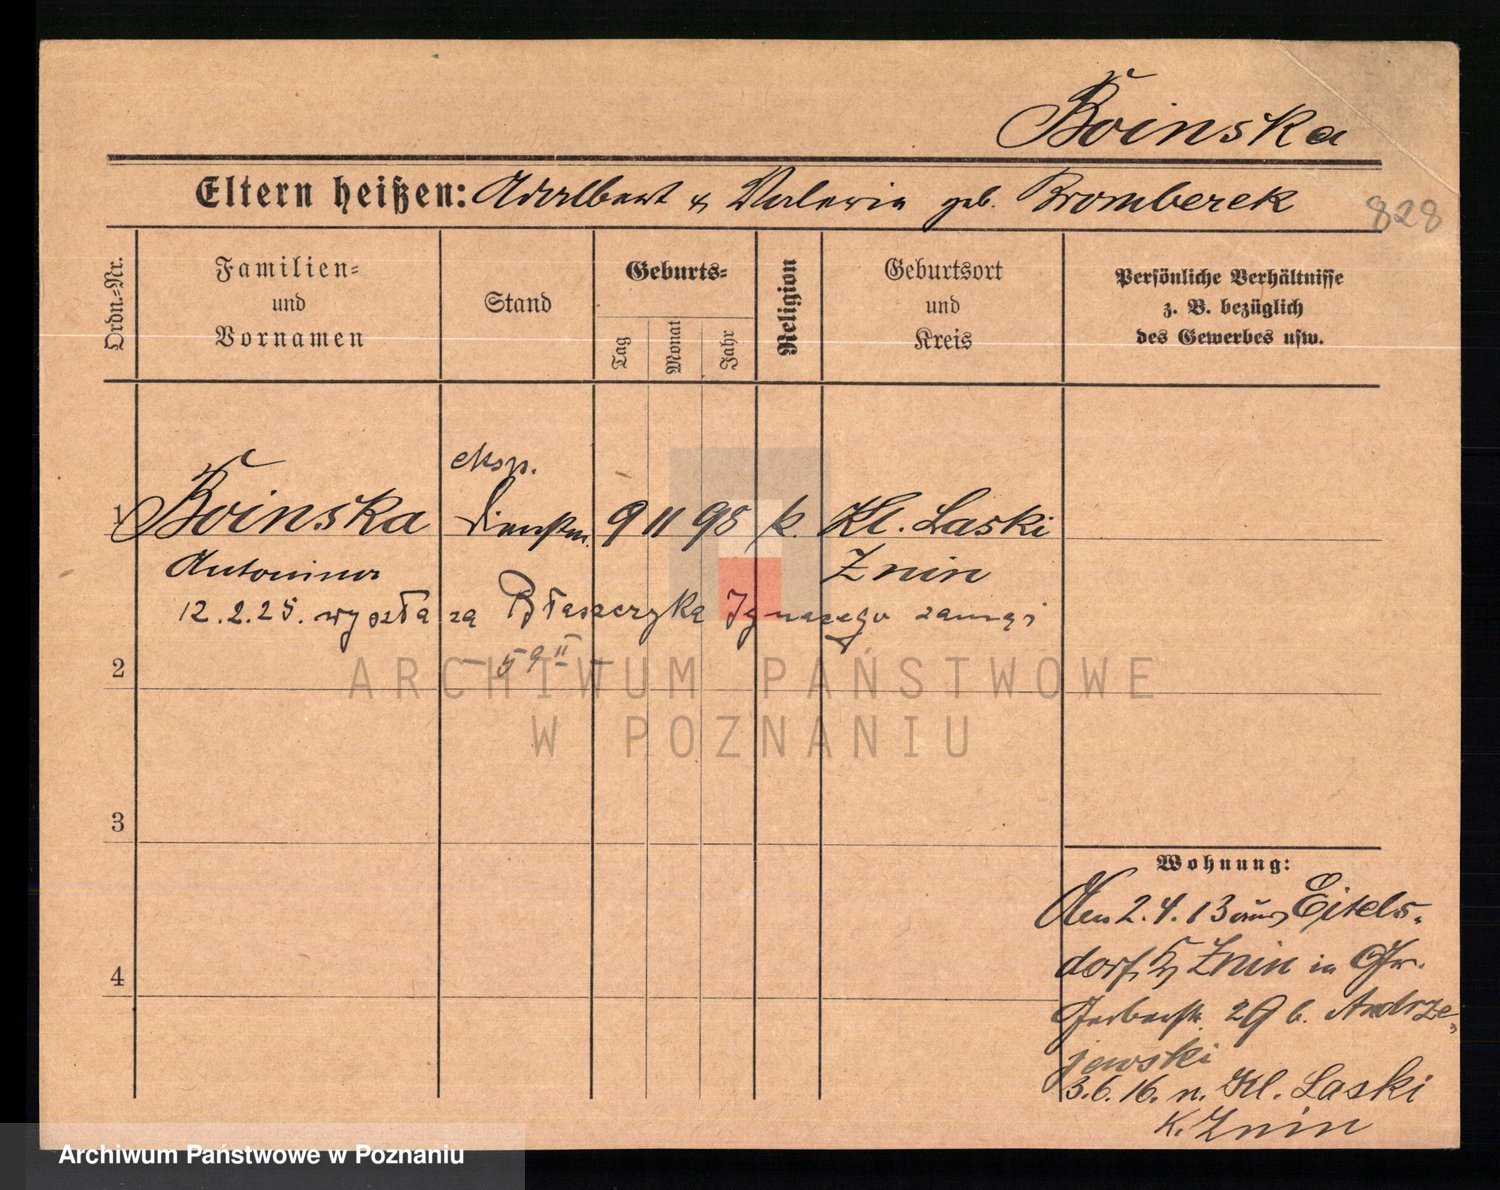 Boinska
Eltern heißen: Adalbert & Valeria geb. Bromberek
828
Ordn.-Nr.
Familien-
und
Vornamen
Stand
Geburts-
Tag
Monat
Jahr
Religion
Geburtsort
und
Kreis
Persönliche Verhältnisse
z. B. bezüglich
des Gewerbes usw.
eksp.
1 Boinska Dienstm. 9 11 98 k. Kl. Laski
Antonina Znin
12.2.25. wyszła za Błaszczyka Ignacego zamąż
2
ARCHIWUM PAŃSTWOWE
W POZNANIU
3
Wohnung:
Den 2.4.13 aus Eitels-
dorf, Znin in
4
Gerberstr. 29 b. Andrze-
jewski
3.6.16. n. Kl. Laski
K. Znin
Archiwum Państwowe w Poznaniu